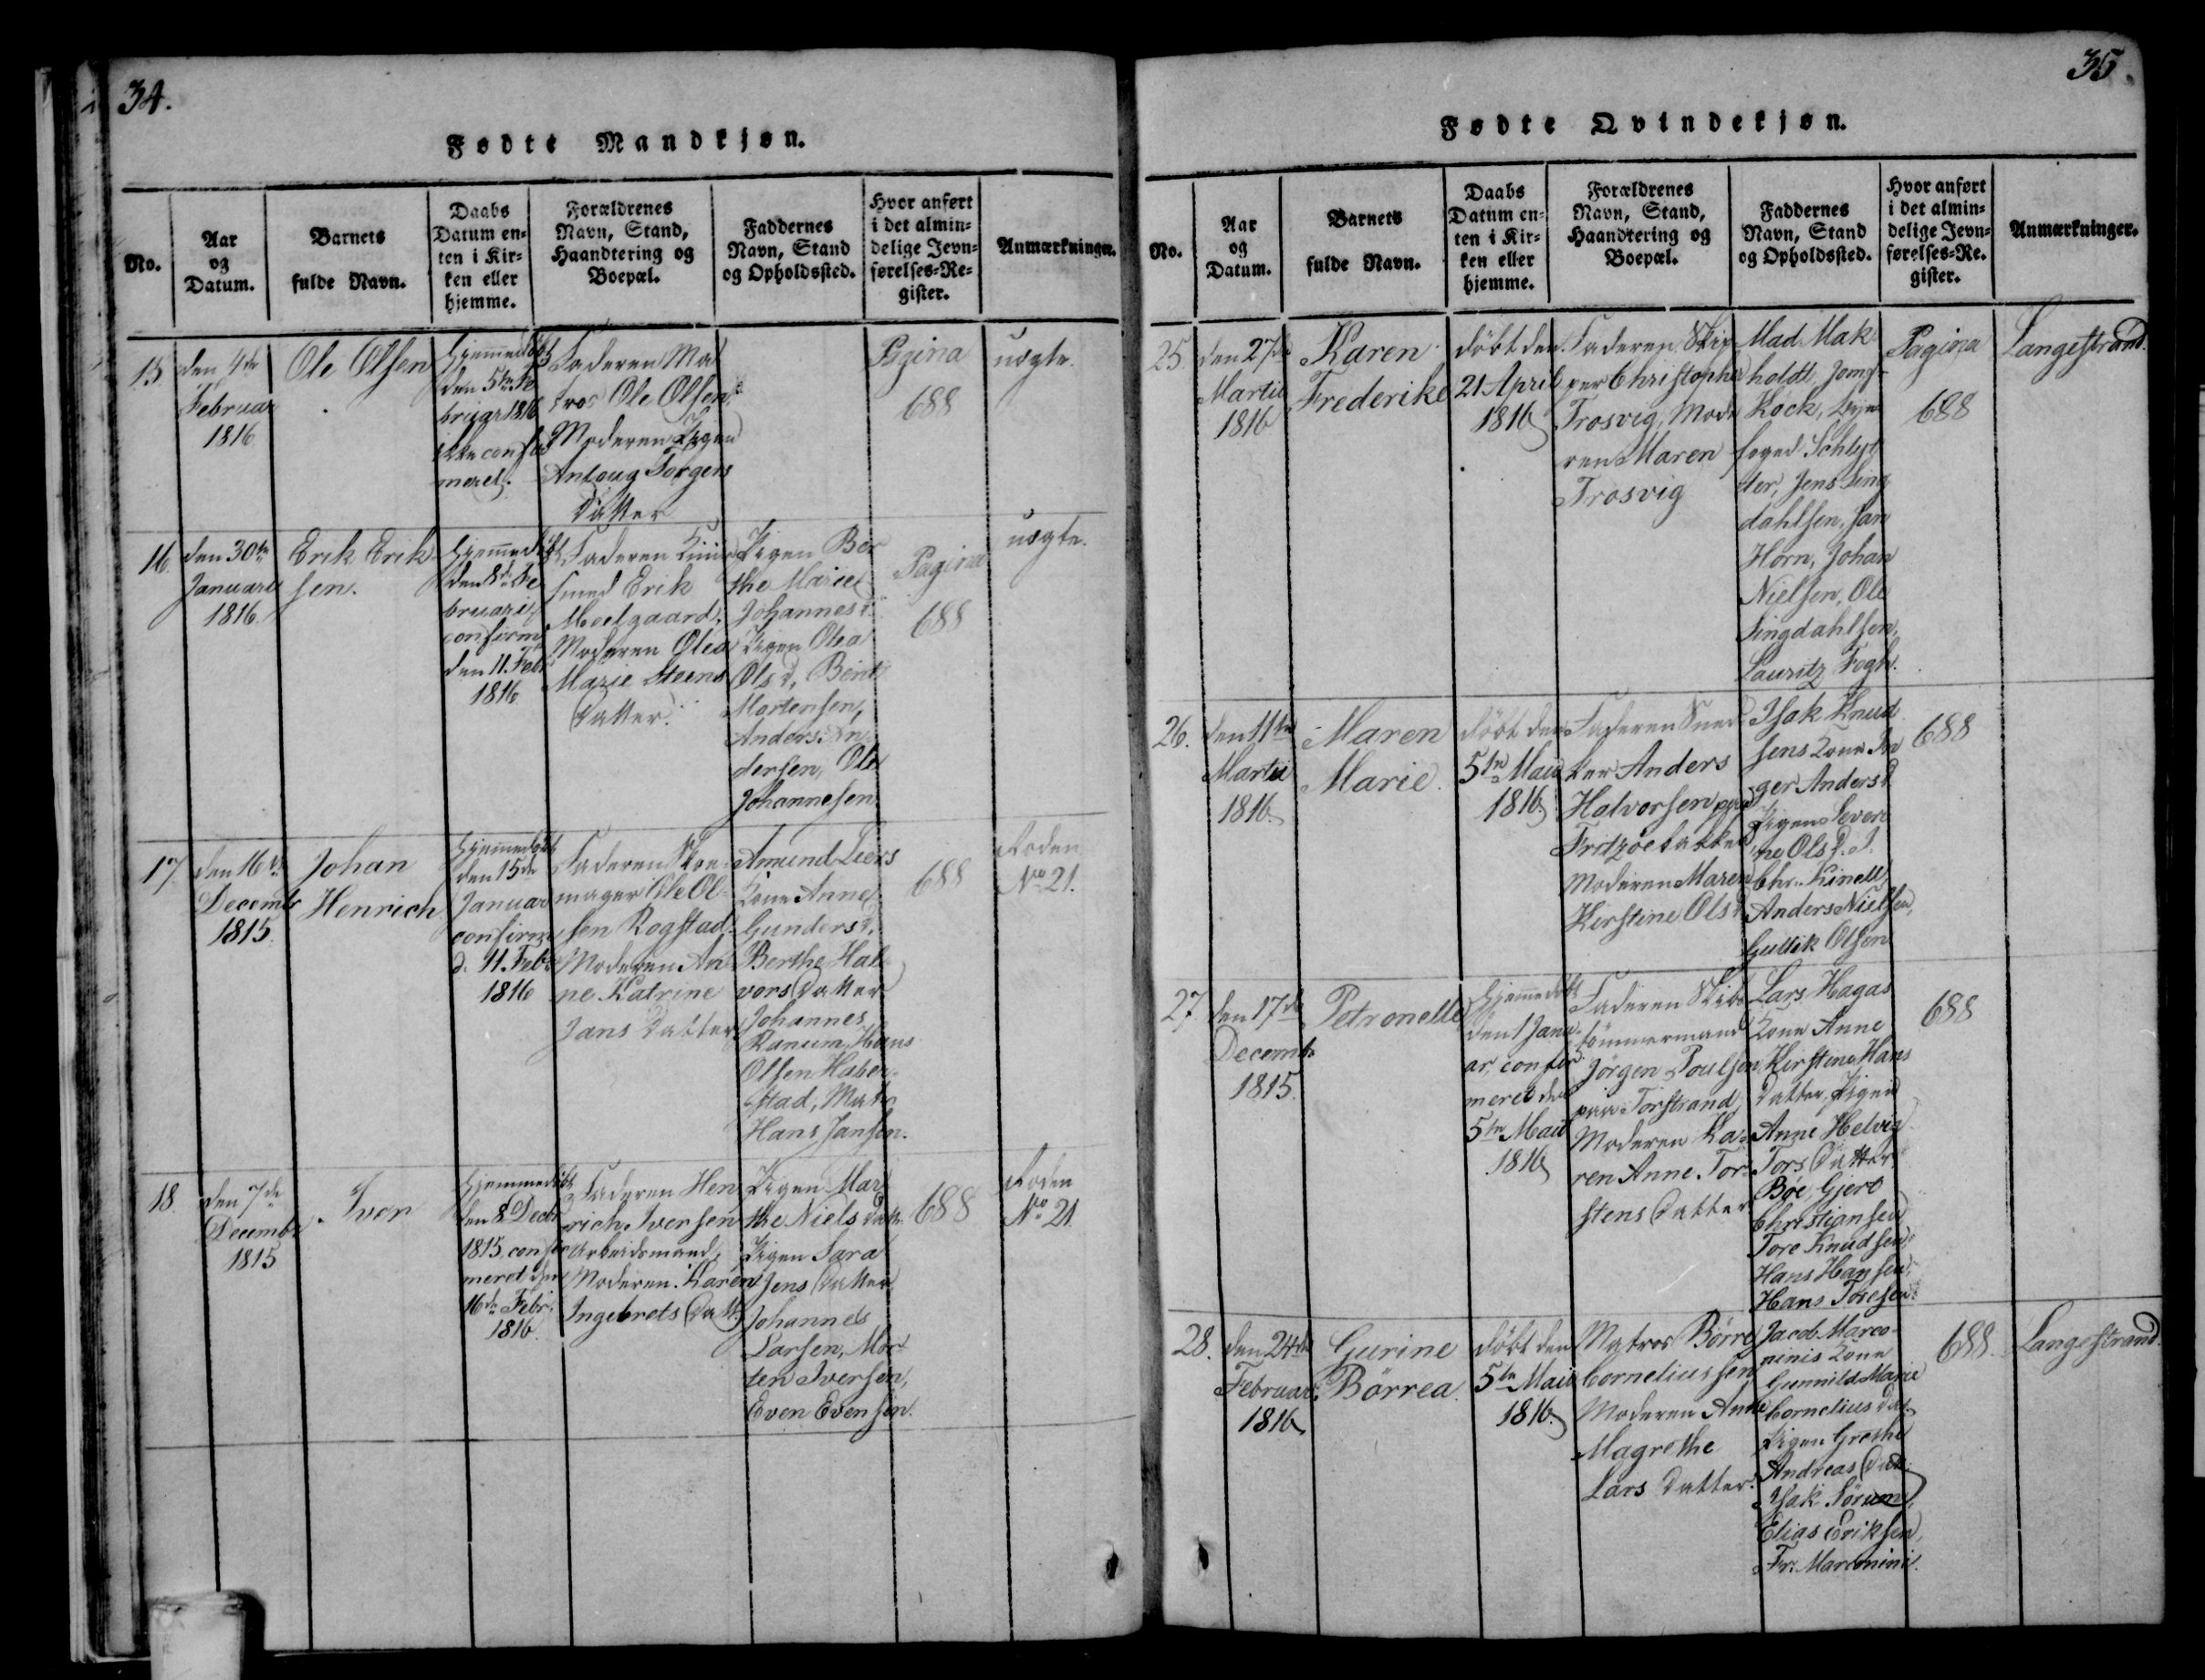 34.
Fødte Mandkjøn.
No.
Aar
og
Datum.
Barnets
fulde Navn.
Daabs
Datum en-
ten i Kir-
ken eller
hjemme.
Forældrenes
Navn, Stand,
Haandtering og
Boepæl.
Faddernes
Navn, Stand
og Opholdssted.
Hvor anført
i det almin-
delige Jevn-
førelses-Re-
gister.
Anmærkninger.
15
den 4de
Februar
1816
Ole Olsen
Hjemmedøbt
den 5te Fe
bruar 1816
ikke confir
meret.
Faderen Ma
tros Ole Olsen
Moderen Pigen
Torgers
Datter
Pagina
688
uægte.
16
den 30te
Januarii
1816.
Erik Erik
sen.
Hjemmedøbt
den 8de Fe
bruarii,
confirm.
den 11. Febr.
1816
Faderen
smed Erik
Moelgaard,
Moderen Olea
Marie Steens
Datter.
Pigen Ber
the Marie
Johannesd.
Pigen Olea
Olsd, Bent
Mortensen,
Anders An
dersen, Ole
Johannesen
Pagina
688
uægte.
17
den 16de
Decembr
1815.
Johan
Henrich
Hjemmedøbt
den 15de
Januar
confirm
d. 11. Febr
1816
Faderen Skoe
mager Ole Ol-
sen Rogstad.
Moderen An
ne Katrine
Jans Datter
Amund Leers
Kone Anne
Gundersd.
Berthe Hal
vors Datter
Johannes
Ranum, Hans
Olsen Haber
stad, Matr
Hans Jansen.
688
Roden
No 21.
18.
den 7de
Decembr
1815
Iver
Hjemmedøbt
den 8 Decbr
1815 confir
meret den
16de Febr.
1816.
Faderen Hen
rich Iversen
Arbeidsmand,
Moderen Karen
Ingebrets Datt.
Pigen Mar
the Niels Datt.
Pigen Sara
Jens Datter
Johannes
Larsen, Mor
ten Iversen,
Even Evensen.
688
Roden
No 21
35.
Fødte Qvindekjøn.
No.
Aar
og
Datum.
Barnets
fulde Navn.
Daabs
Datum en-
ten i Kir-
ken eller
hjemme.
Forældrenes
Navn, Stand,
Haandtering og
Boepæl.
Faddernes
Navn, Stand
og Opholdssted.
Hvor anført
i det almin-
delige Jevn-
førelses-Re-
gister.
Anmærkninger.
25
den 27de
Martii
1816
Karen
Frederike
døbt den
21 April
1816
Faderen Skip
per Christopher
Trosvig, Mode
ren Maren
Trosvig
Mad. Mak
holdt, Jomfr.
Kock, Bye
foged Schlyt
ter, Jens Ting
dahlsen, Jan
Horn, Johan
Nielsen, Ole
Tingdahlsen,
Lauritz Fogh.
Pagina
688
Langestrand.
26.
den 11te
Martii
1816.
Maren
Marie.
døbt den
5te Maii
1816
Faderen Sned
ker Anders
Halvorsen paa
Fritzøe bakken
Moderen Maren
Kirstine Olsd.
Isak Knud
sens Kone In
ger Andersd.
Pigen Severi
ne Olsd. J.
Chr. Kinell,
Anders Nielsen,
Gullik Olsen
688
27.
den 17de
Decembr
1815.
Petronelle
Hjemmedøbt
den 1 Janu
ar, confir
meret den
5te Maii
1816
Faderen Skibs
tømmermand
Jørgen Poulsen
paa Torstrand
Moderen Ka-
ren Anne Tor-
stens Datter
Lars Hagas
Kone Anne
Kirstine Hans
Datter, Pigen
Anne Helvig
Tors Datter
Bøe, Gjert
Christiansen
Tore Knudsen,
Hans Hansen,
Hans Toresen.
688
28.
den 24de
Februar.
1816
Gurine
Børrea.
døbt den
5te Maii
1816.
Matros Børre
Corneliussen
Moderen Anne
Magrethe
Lars Datter.
Jacob Marco-
ninis Kone
Gunnild Marie
Cornelius Dat.
Pigen Grethe
Andreas Datt.
Isak Sørum,
Elias Eriksen,
Fr. Marconini.
688.
Langestrand.